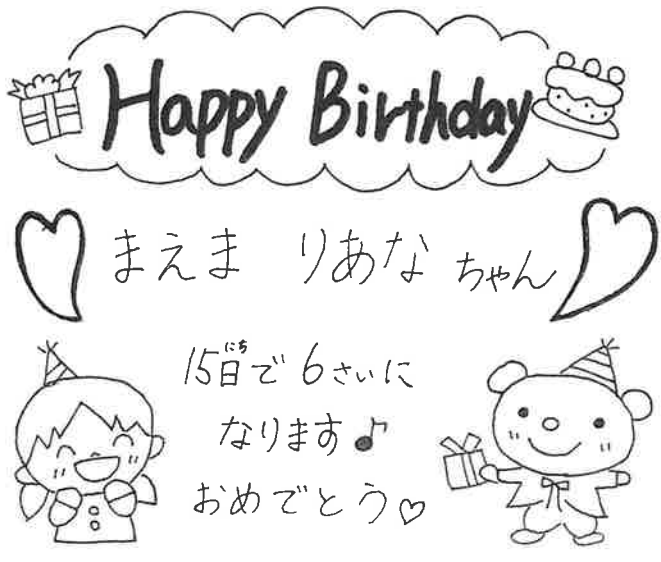 Happy Birthday
まえま りあな ちゃん
15日で 6さいに
にち
なります♪
おめでとう♡